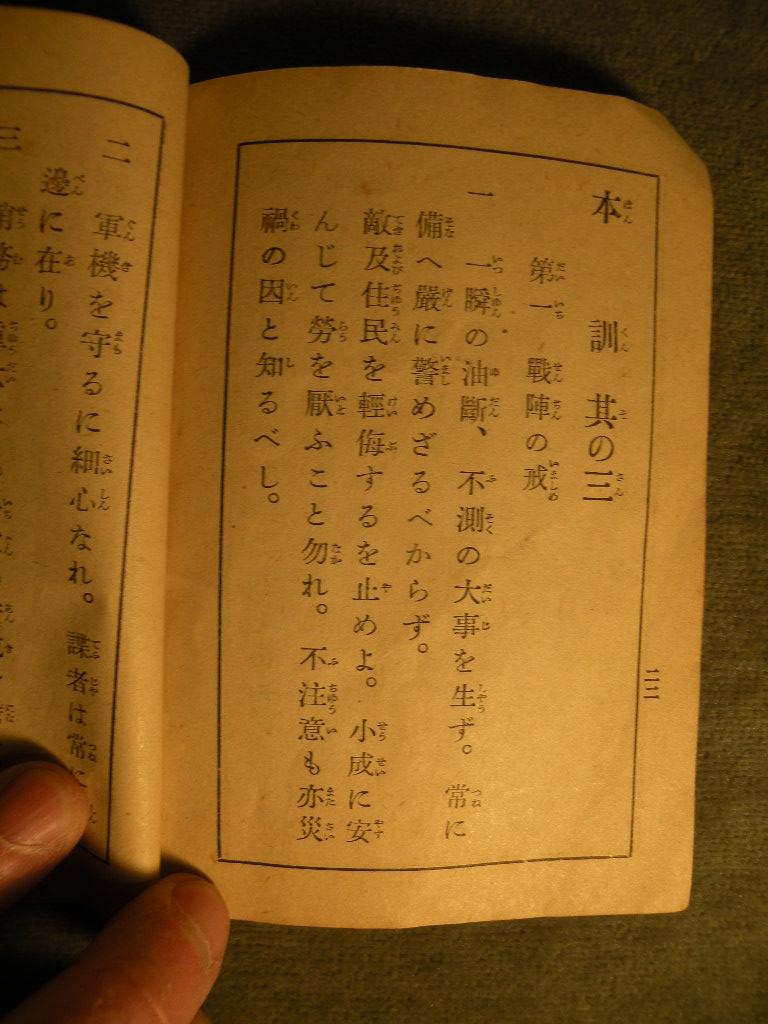 本訓 其の三
第一 戰陣の戒
一 一瞬の油斷、不測の大事を生ず。常に
備へ嚴に警めざるべからず。
敵及住民を輕侮するを止めよ。小成に安
んじて勞を厭ふこと勿れ。不注意も亦災
禍の因と知るべし。
二二
二 軍機を守るに細心なれ。諜者は常に
邊に在り。
三